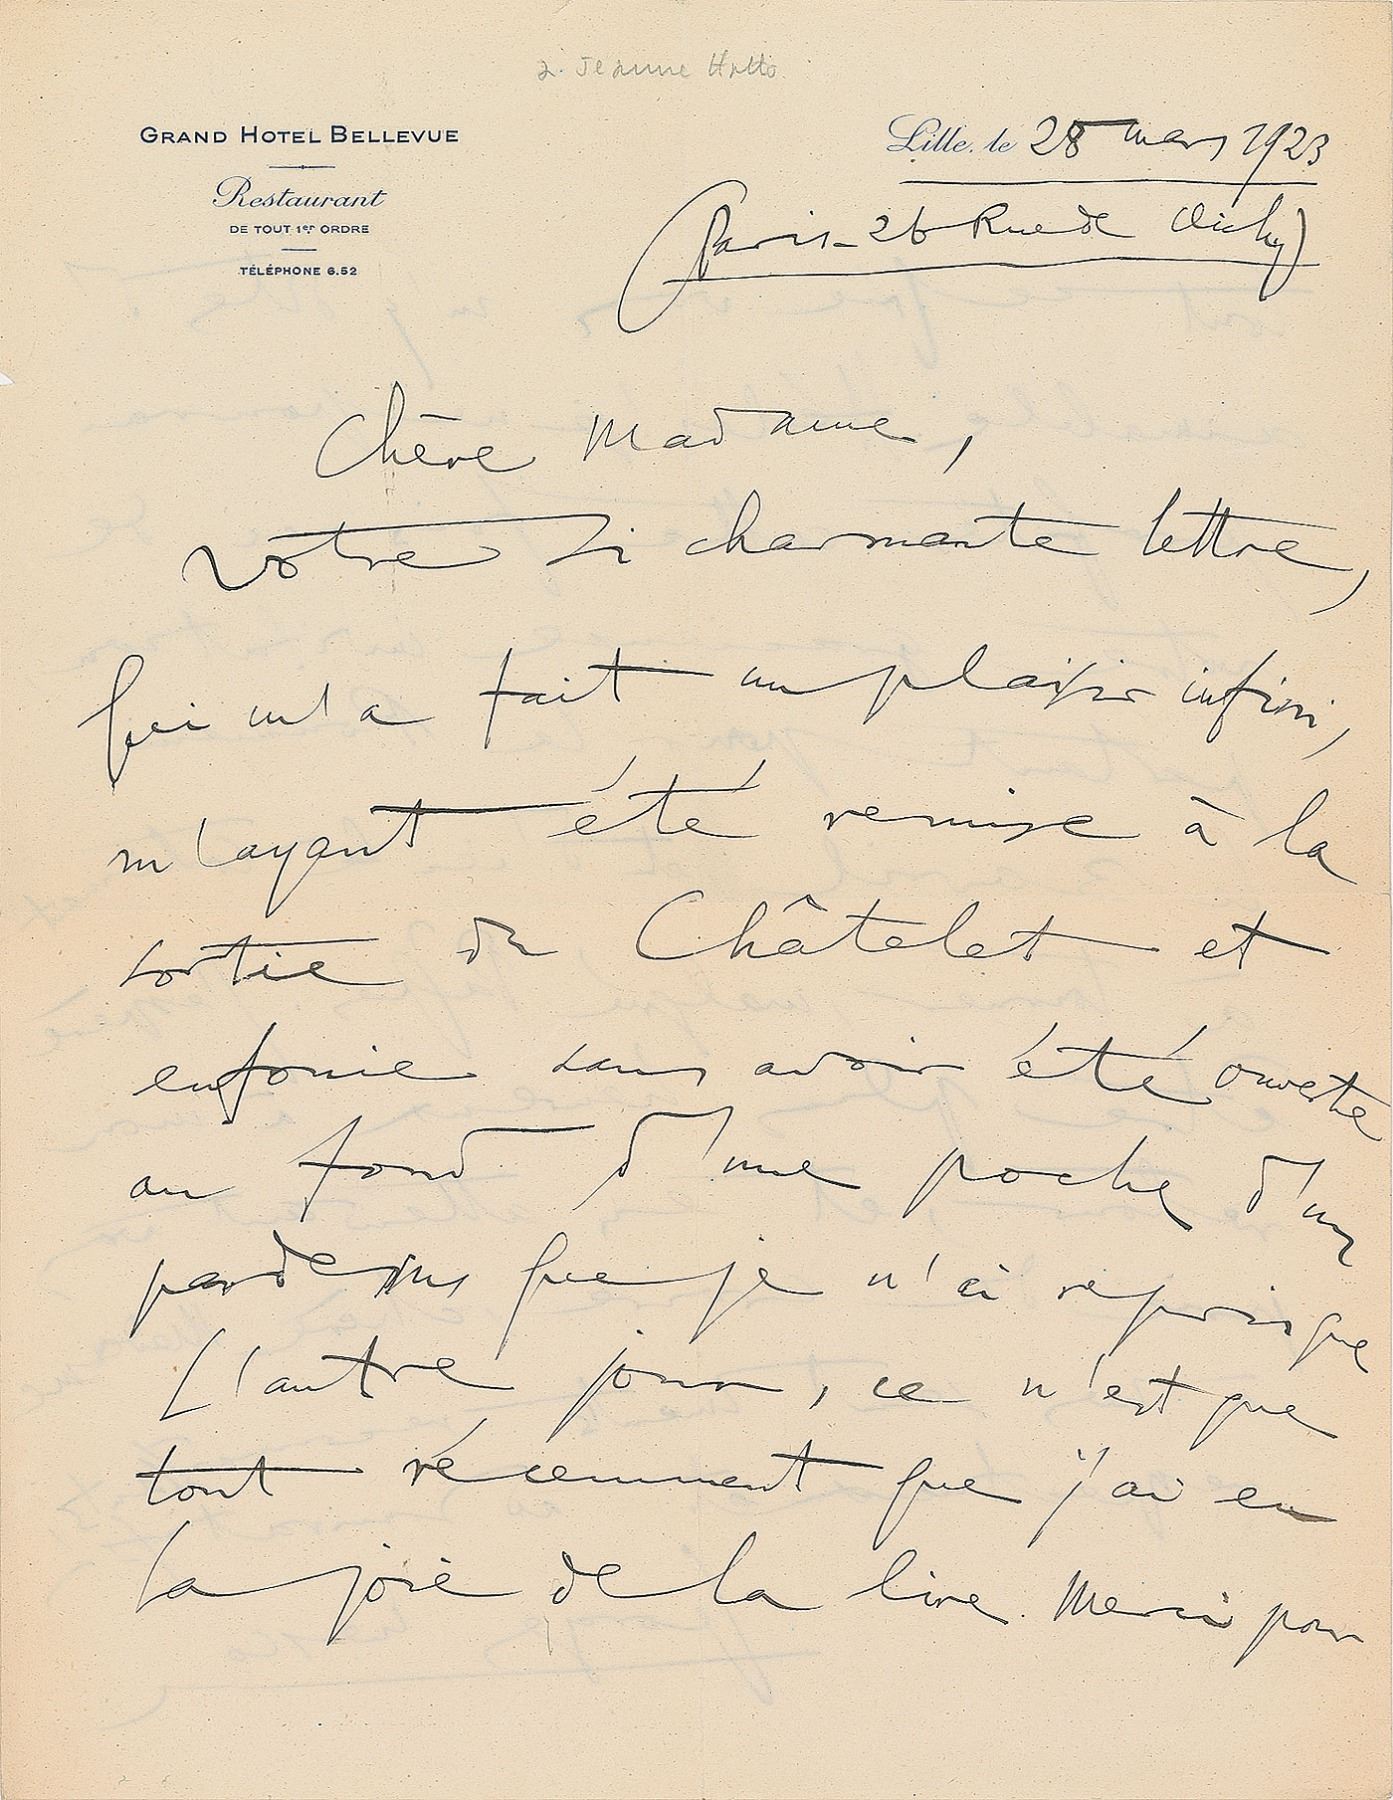 à Jeanne Hatto
GRAND HOTEL BELLEVUE
Restaurant
DE TOUT 1er ORDRE
TÉLÉPHONE 6.52
Lille, le 28 mars 1923
(Paris - 26 Rue de Clichy)
Chère Madame,
votre si charmante lettre,
qui m'a fait un plaisir infini,
m'ayant été remise à la
sortie du Châtelet et
enfouie sans avoir été ouverte
au fond d'une poche d'un
pardessus que je n'ai repris que
l'autre jour, ce n'est que
tout récemment que j'ai eu
la joie de la lire. Merci pour